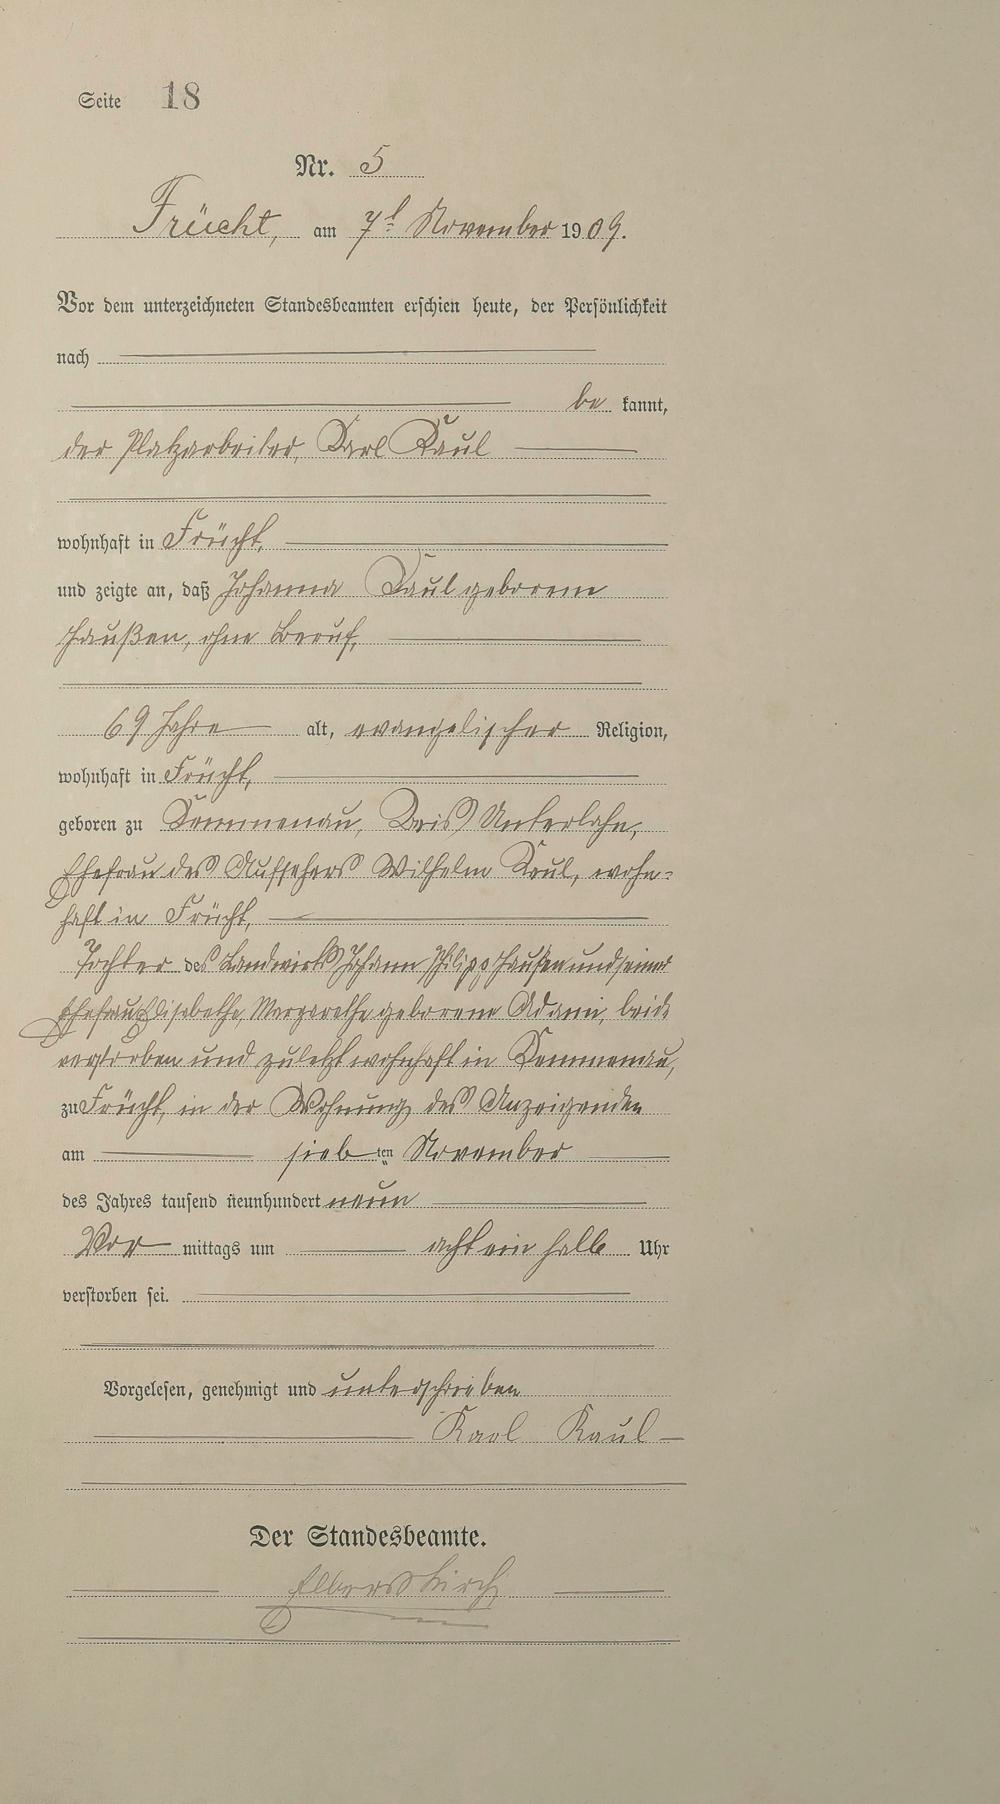 Seite 18
Nr. 5
Frücht, am 7t November 1909.
Vor dem unterzeichneten Standesbeamten erschien heute, der Persönlichkeit
nach
be kannt,
der Platzarbeiter, Karl Kaul
wohnhaft in Frücht,
und zeigte an, daß Johanna Kaul geborene
Haußen, ohne Beruf,
69 Jahre alt, evangelischer Religion,
wohnhaft in Frücht,
geboren zu Kemmenau, Kreis Unterlahn,
Ehefrau des Aufsehers Wilhelm Kaul, wohn=
haft in Frücht,
Tochter des Landwirts Johann Philipp Haußen und seiner
Ehefrau Elisabethe Margarethe geborene Adami, beide
verstorben und zuletzt wohnhaft in Kemmenau,
zu Frücht, in der Wohnung des Anzeigenden
am siebten November
des Jahres tausend neunhundert neun
Vor mittags um acht ein halb Uhr
verstorben sei.
Vorgelesen, genehmigt und unterschrieben
Karl Kaul
Der Standesbeamte.
Elberskirch